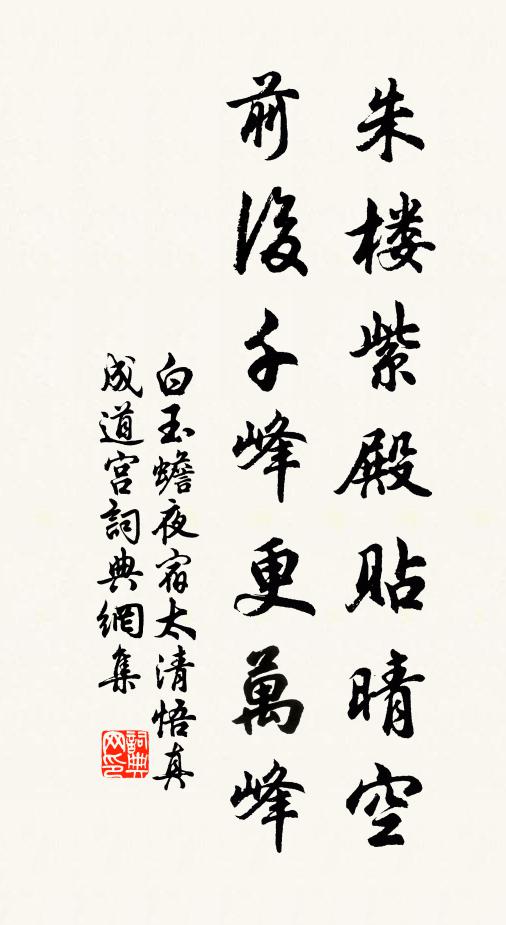 朱楼紫殿貼晴空
前後千峰更萬峰
白玉蟾夜宿太清悟真
成道宮詞典網集
詞典
网印